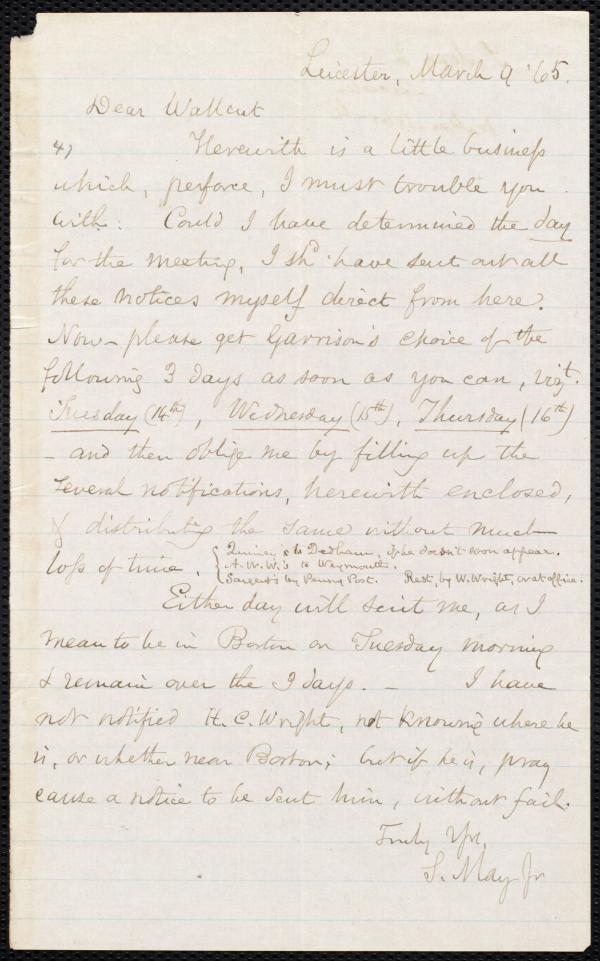 Leicester, March 9 '65.
Dear Wallcut
4) Herewith is a little business
which, perforce, I must trouble you
with: Could I have determined the day
for the meeting, I shd have sent out all
these notices myself direct from here.
Now - please get Garrison's choice of the
following 3 days as soon as you can, vizt.
Tuesday (14th), Wednesday (15th), Thursday (16th)
- and then oblige me by filling up the
several notifications, herewith enclosed,
& distributing the same without much
loss of time.
{ Quincy's to Dedham, if he doesn't soon appear.
A. W. W.'s to Weymouth.
Sargent's by Penny Post. Rest, by W. Wright, or at office.
Either day will suit me, as I
mean to be in Boston on Tuesday morning
& remain over the 3 days. - I have
not notified H. C. Wright, not knowing where he
is, or whether near Boston; but if he is, pray
cause a notice to be sent him, without fail.
Truly Yrs,
S. May Jr